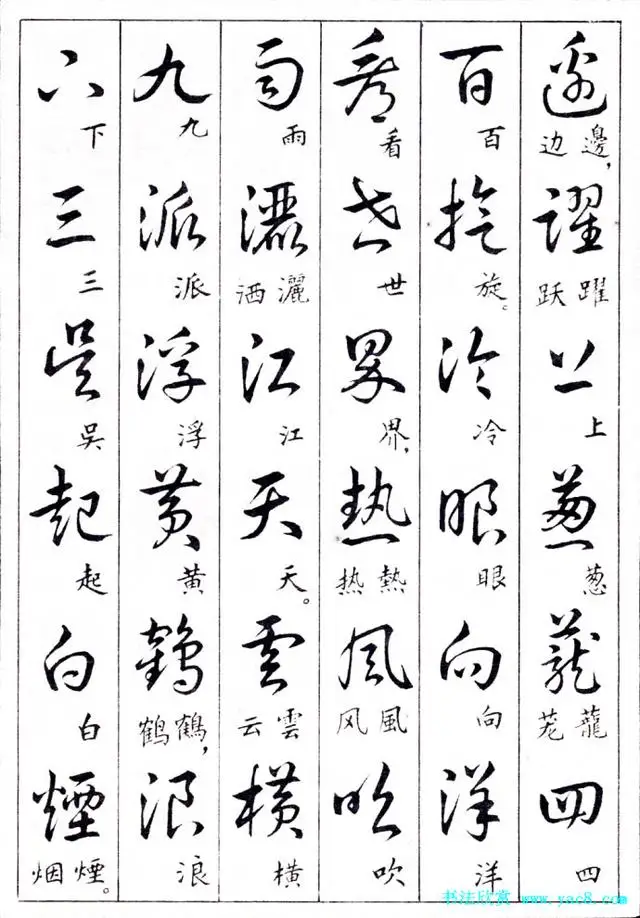 邊 邊,边 躍 躍跃 上 上 葱 葱 蘢 蘢茏 四 四
百 百 旋 旋。 冷 冷 眼 眼 向 向 洋 洋
看 看 世 世 界 界, 熱 熱热 風 風风 吹 吹
雨 雨 灑 灑洒 江 江 天 天。 雲 雲云 橫 橫
九 九 派 派 浮 浮 黄 黄 鶴 鶴,鹤 浪 浪
下 下 三 三 吳 吳 起 起 白 白 煙 煙。烟
书法欣赏 www.yac8.com